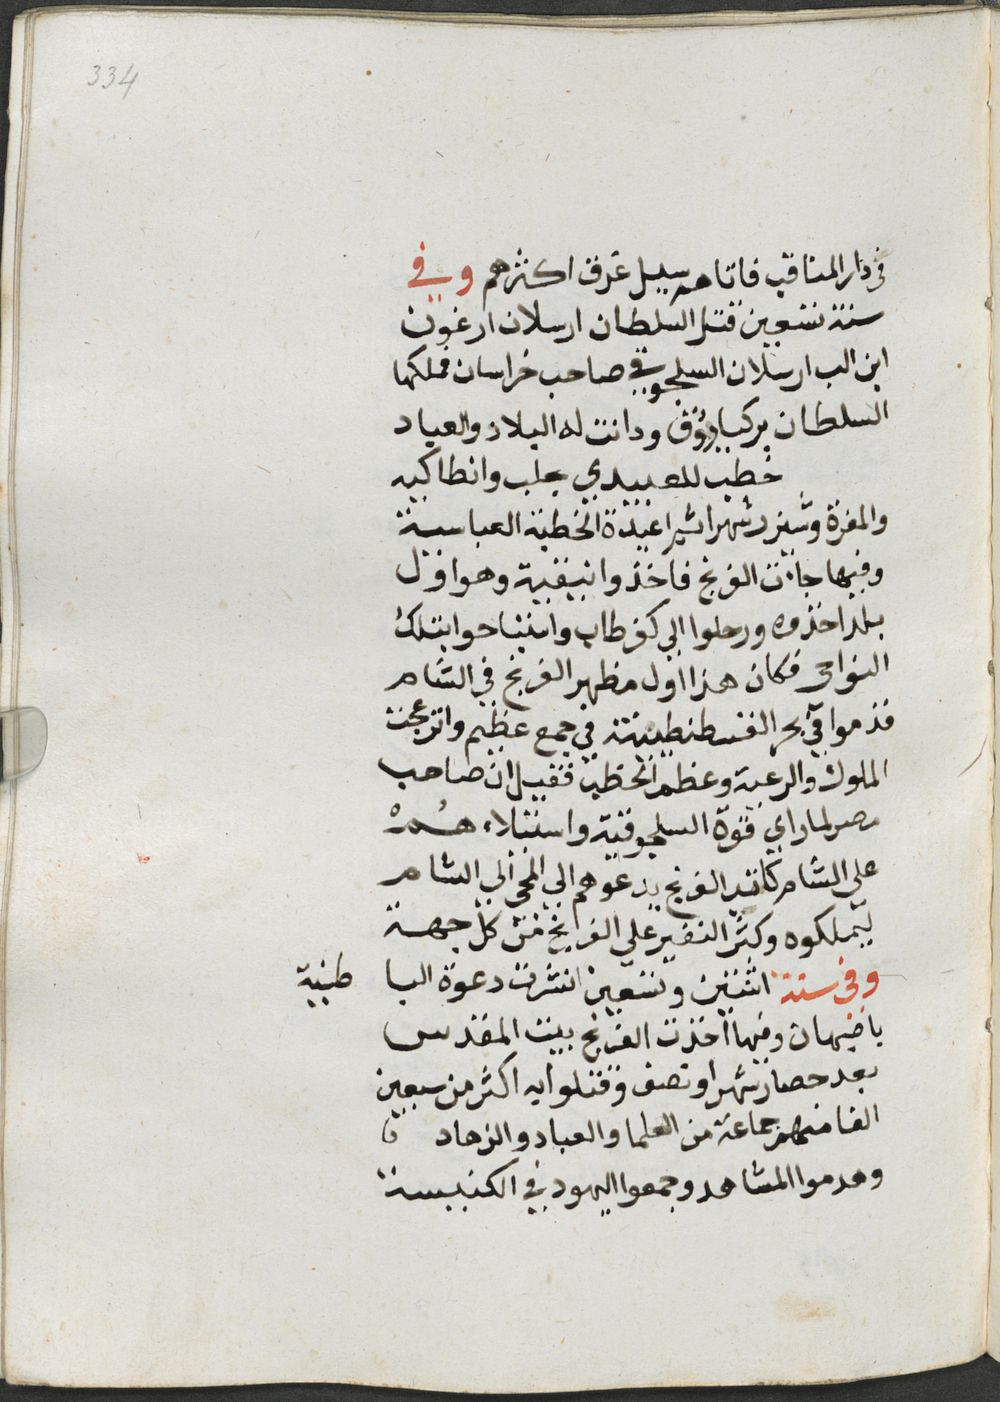 334
في دار المناقب فاتاهم سيل غرق اكثرهم وفي
سنة تسعين قتل السلطان ارسلان ارغون
ابن الب ارسلان السلجوقي صاحب خراسان فملكها
السلطان بركياروق ودانت له البلاد والعباد
خطب للعبيدي بحلب وانطاكيه
والمعرة وشيزر شهرا ثم اعيدة الخطبة العباسية
وفيها جاءت الفرنج فاخذوا نيقية وهو اول
بلد اخذوه ورحلوا الي كفرطاب واستباحوا بتلك
النواحي فكان هذا اول مظهر الفرنج في الشام
قدموا في بحر القسطنطينية في جمع عظيم وانزعجت
الملوك والرعية وعظم الخطب فقيل ان صاحب
مصر لما راي قوة السلجوقية واستيلاءهم
علي الشام كاتب الفرنج يدعوهم الي المجي الي الشام
ليملكوه وكثر النفير علي الفرنج من كل جهة
وفي سنة اثنين وتسعين انتشرت دعوة البا طنية
باصبهان وفيها اخذت الفرنج بيت المقدس
بعد حصار شهرا ونصف وقتلوا به اكثر من سبعين
الفا منهم جماعة من العلما والعباد والزهاد
وهدموا المشاهد وجمعوا اليهود في الكنيسة